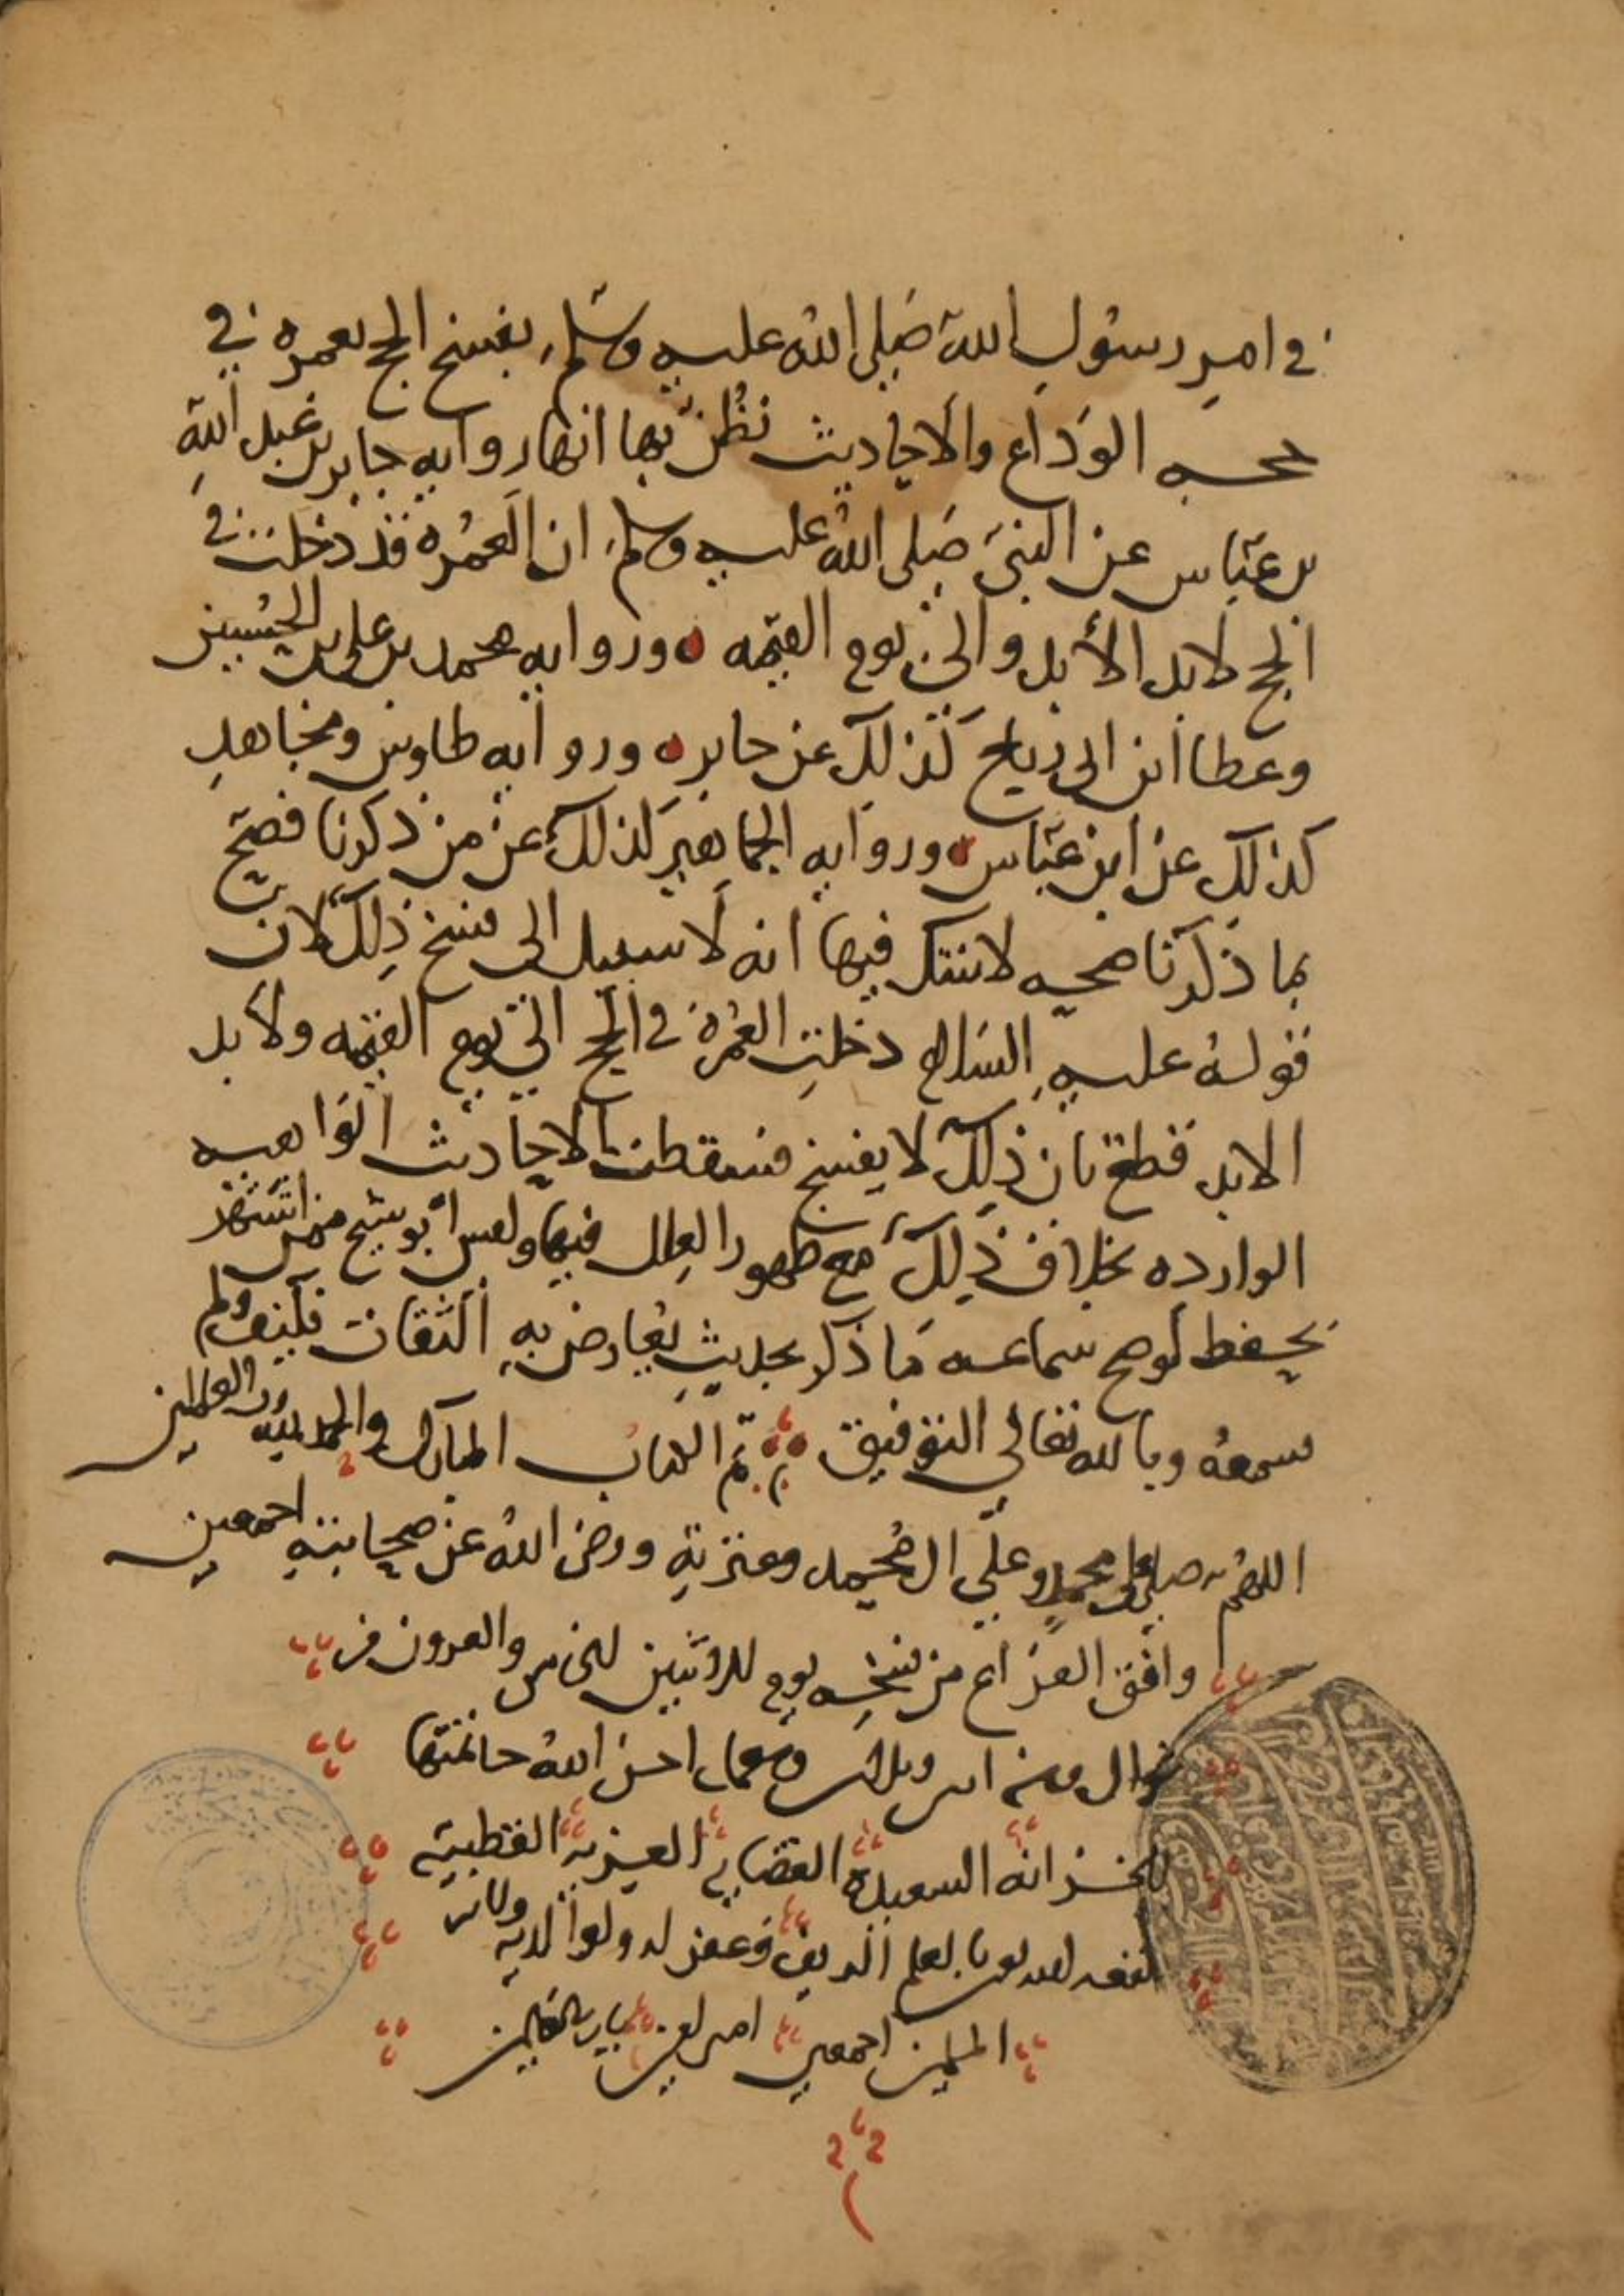 في امر رسول الله صلى الله عليه وسلم بفسخ الحج بعمره في
حجه الوداع والاحاديث نظن بها انها روايه جابر بن عبد الله
بن عباس عن النبي صلى الله عليه وسلم ان العمره قد دخلت في
الحج لابد الأبد والى يوم القيمه وروايه محمد بن علي بن الحسين
وعطا ابن ابى رباح كذلك عن جابر وروايه طاوس ومجاهد
كذلك عن ابن عباس وروايه الجماهير كذلك عن من ذكرنا فصح
بما ذكرنا صحه لا شك فيها انه لا سبيل الى فسخ ذلك لان
قوله عليه السلام دخلت العمرة في الحج الى يوم القيمه ولأبد
الابد قطع بان ذلك لا يفسخ فسقطت الاحاديث الواهيه
الوارده بخلاف ذلك مع ظهور العلل فيها وليس ابو شيخ ممن اشتهر
بحفظ لوصح سماعه ما ذكر بحديث يعارض به الثقات فكيف ولم
يسمعه وبالله تعالى التوفيق تم الكتاب المبارك والحمد لله رب العالمين
اللهم صلي على محمد وعلى ال محمد وعترته ورضى الله عن صحابته اجمعين
وافق الفراع من نسخه يوم الاثنين الخامس والعشرون من
شوال سنه احسن الله خاتمتها
للخزانه السعيدة العزيه القطبيه
بعلم الدين وغفر له ولوالديه
المسلمين اجمعين امين رب العالمين